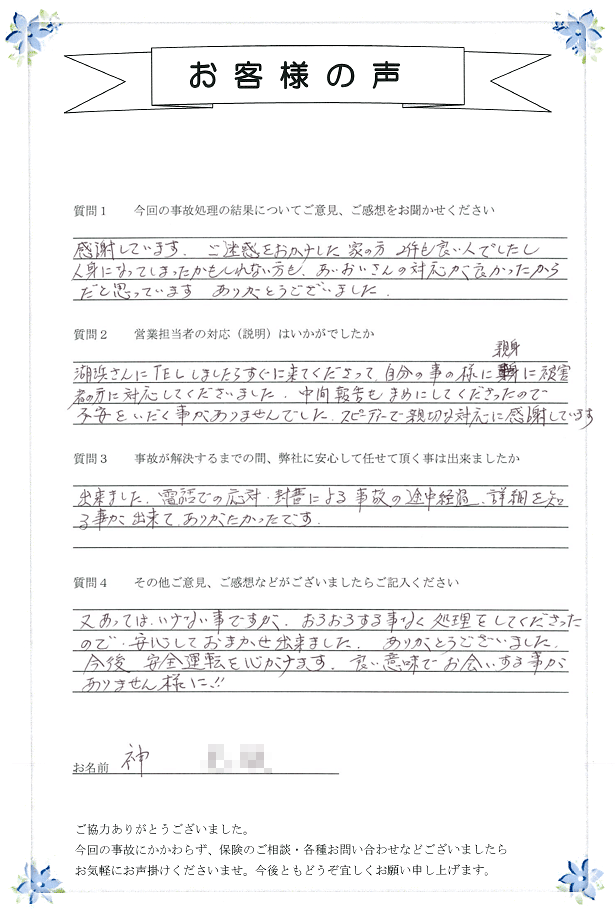 お客様の声
質問１　今回の事故処理の結果についてご意見、ご感想をお聞かせください
感謝しています．ご迷惑をおかけした家の方 2件も良い人でしたし
人身になってしまったかもしれない方も、あいおいさんの対応が良かったから
だと思っています　ありがとうございました．
質問２　営業担当者の対応（説明）はいかがでしたか
親身
湖浜さんにTELしましたらすぐに来てくださって、自分の事の様に に被害
者の方に対応してくださいました．中間報告もまめにしてくださったので
不安をいだく事がありませんでした．スピーディーで親切な対応に感謝しています
質問３　事故が解決するまでの間、弊社に安心して任せて頂く事は出来ましたか
出来ました．電話での応対・封書による事故の途中経過、詳細を知
る事が出来て、ありがたかったです．
質問４　その他ご意見、ご感想などがございましたらご記入ください
又あってはいけない事ですが、おろおろする事なく処理をしてくださった
ので、安心しておまかせ出来ました．ありがとうございました．
今後 安全運転を心がけます．良い意味でお会いする事が
ありません様に、!!
お名前　神
ご協力ありがとうございました。
今回の事故にかかわらず、保険のご相談・各種お問い合わせなどございましたら
お気軽にお声掛けくださいませ。今後ともどうぞ宜しくお願い申し上げます。